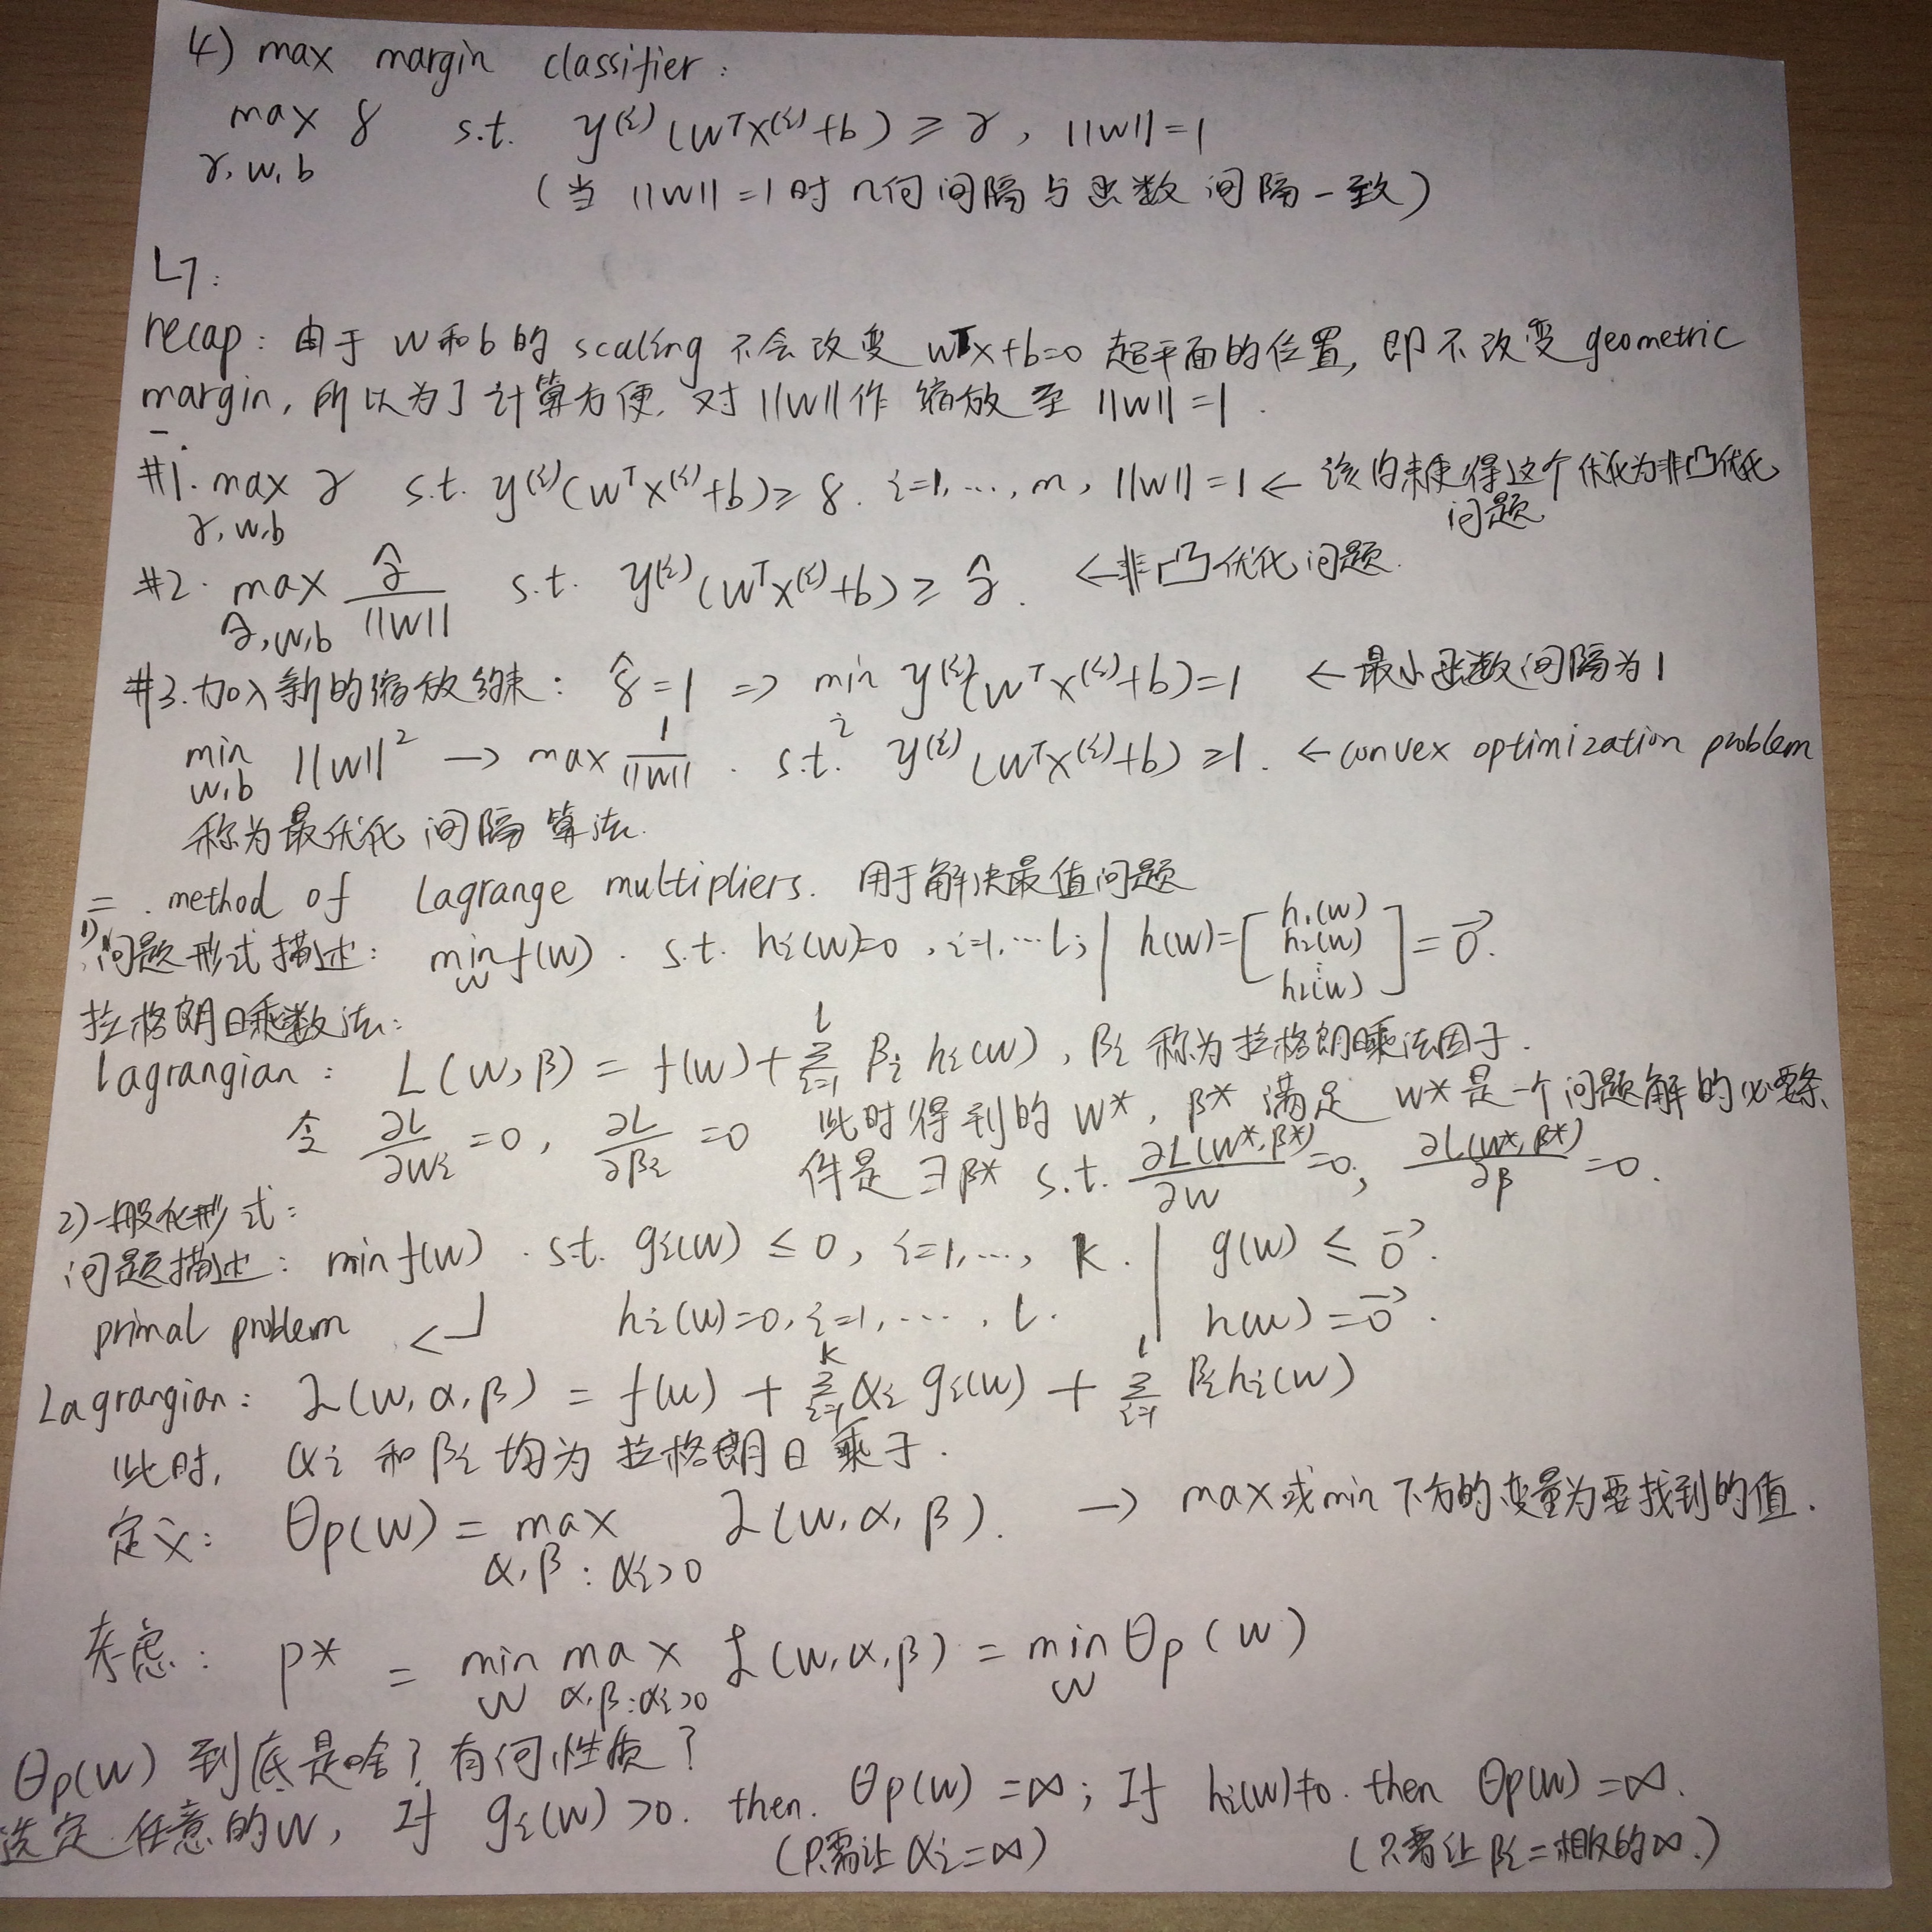 4) max margin classifier:
max γ s.t. y⁽ⁱ⁾(wᵀx⁽ⁱ⁾+b) ≥ γ, ||w||=1
γ,w,b
(当 ||w||=1时 几何间隔与函数间隔一致)
L7:
recap: 由于 w和b的 scaling 不会改变 wᵀx+b=0 超平面的位置, 即不改变 geometric
margin, 所以为了计算方便, 对||w||作 缩放至 ||w||=1.
一.
#1. max γ s.t. y⁽ⁱ⁾(wᵀx⁽ⁱ⁾+b) ≥ γ. i=1,...,m, ||w||=1 ← 该约束使得这个优化为非凸优化
γ,w,b 问题
#2. max γ̂/||w|| s.t. y⁽ⁱ⁾(wᵀx⁽ⁱ⁾+b) ≥ γ̂. ←非凸优化问题.
γ̂,w,b
#3.加入新的缩放约束: γ̂=1 => min y⁽ⁱ⁾(wᵀx⁽ⁱ⁾+b)=1 ←最小函数间隔为1
i
min ||w||² → max 1/||w||. s.t. y⁽ⁱ⁾(wᵀx⁽ⁱ⁾+b) ≥1. ←convex optimization problem
w,b
称为最优化间隔算法.
二. method of Lagrange multipliers. 用于解决最值问题
1)问题形式描述: min f(w). s.t. hᵢ(w)=0, i=1,...l; | h(w)=[h₁(w) h₂(w) ⋮ hₗ(w)]=0⃗.
w
拉格朗日乘数法:
lagrangian: L(w,β) = f(w)+ Σᵢ₌₁ˡ βᵢ hᵢ(w), βᵢ 称为拉格朗日乘法因子.
令 ∂L/∂wᵢ=0, ∂L/∂βᵢ=0 此时得到的 w*, β* 满足 w*是一个问题解的必要条
件是 ∃β* s.t. ∂L(w*,β*)/∂w=0, ∂L(w*,β*)/∂β=0.
2)一般化形式:
问题描述: min f(w). s.t. gᵢ(w) ≤ 0, i=1,..., k. | g(w) ≤ 0⃗.
primal problem ↵ hᵢ(w)=0, i=1,...., l. | h(w)=0⃗.
Lagrangian: L(w,α,β) = f(w) + Σᵢ₌₁ᵏ αᵢ gᵢ(w) + Σᵢ₌₁ˡ βᵢhᵢ(w)
此时, αᵢ 和 βᵢ 均为拉格朗日乘子.
定义: θp(w) = max L(w,α,β). → max或min下方的变量为要找到的值.
α,β: αᵢ>0
考虑: p* = min max L(w,α,β) = min θp(w)
w α,β:αᵢ>0 w
θp(w) 到底是啥? 有何性质?
选定任意的w, If gᵢ(w)>0. then. θp(w)=∞; If hᵢ(w)≠0. then θp(w)=∞.
(只需让 αᵢ=∞) (只需让 βᵢ=相反的∞.)